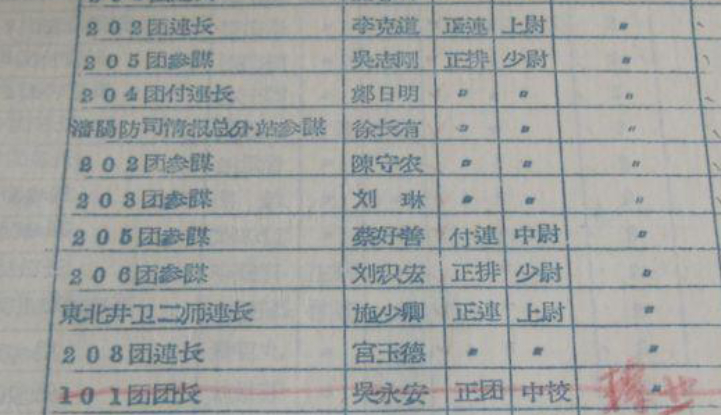 202团連长 李克道 正連 上尉 〃
205团参謀 吳志刚 正排 少尉 〃
204团付連长 鄭日明 〃 〃 〃
瀋陽防司情报总分站参謀 徐长有 〃 〃 〃
202团参謀 陳守农 〃 〃 〃
203团参謀 刘琳 〃 〃 〃
205团参謀 蔡好善 付連 中尉 〃
206团参謀 刘积宏 正排 少尉 〃
東北井卫二师連长 施少卿 正連 上尉 〃
203团連长 宮玉德 〃 〃 〃
101团团长 吳永安 正团 中校 〃